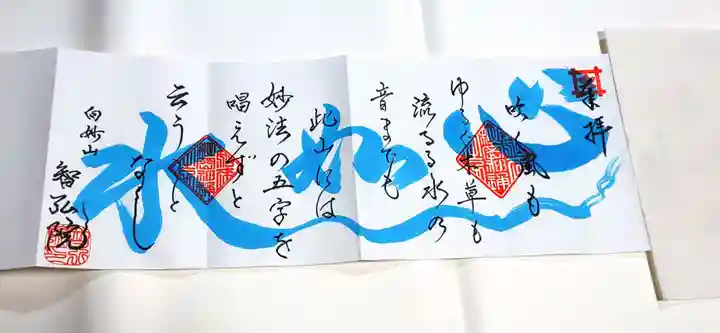 奉拝
心如水
吹く風も
ゆるぐ木草も
流るる水の
音までも
此山には
妙法の五字を
唱えずと
云うこと
なし
向妙山
智弘院